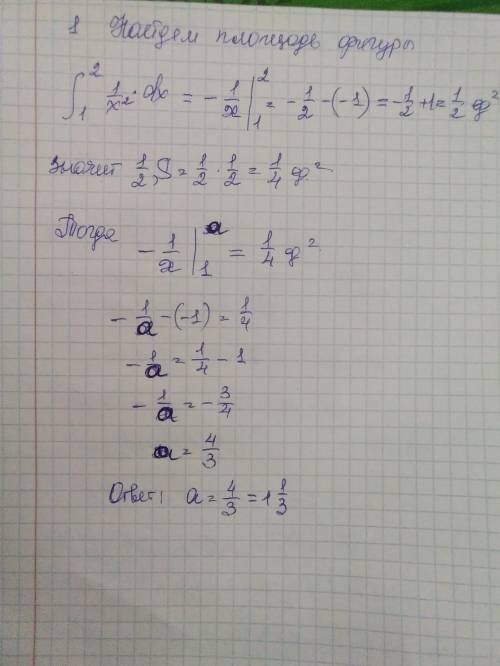 1 Найдем площадь фигуры
∫₁² 1/x² · dx = - 1/x |₁² = - 1/2 - (-1) = - 1/2 + 1 = 1/2 ед²
значит 1/2 S = 1/2 · 1/2 = 1/4 ед²
Тогда - 1/x |₁ᵃ = 1/4 ед²
- 1/a - (-1) = 1/4
- 1/a = 1/4 - 1
- 1/a = - 3/4
a = 4/3
Ответ: a = 4/3 = 1 1/3